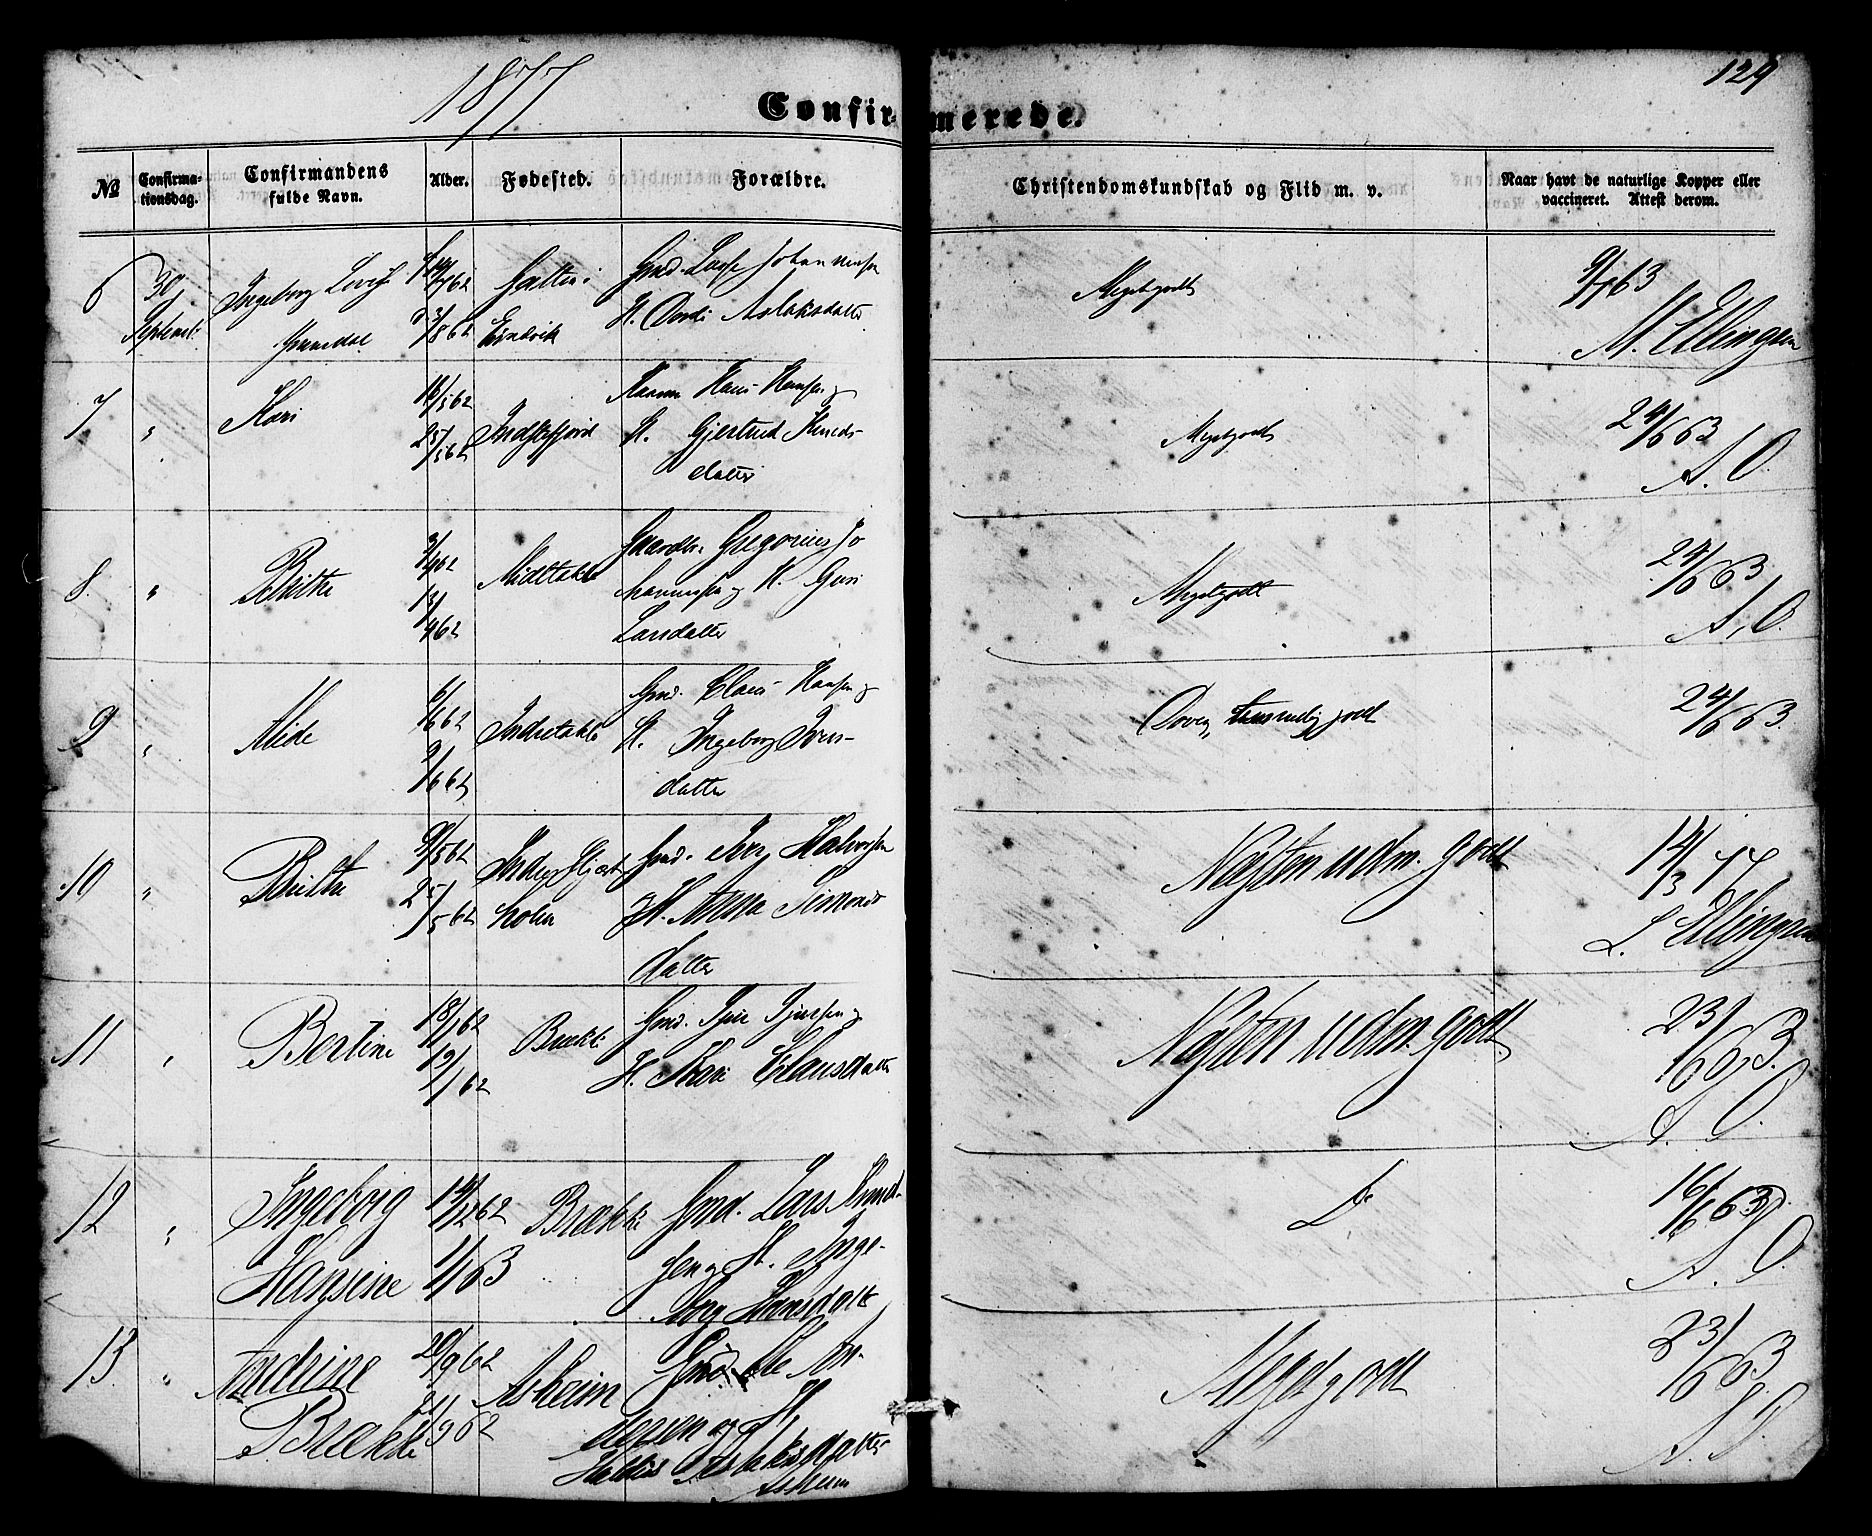 1877
129
Confirmerede.
No
Confirmationsdag.
Confirmandens fulde Navn.
Alder.
Fødested.
Forældre.
Christendomskundskab og Flid m. v.
Naar havt de naturlige Kopper eller vaccineret. Attest derom.
6
30 September
Ingeborg
3/8 62
Gmd. Lasse Johannesen
H. Aslaksdatter
Megetgodt
9/7 63
M. Ellingsen
7
"
Kari
16/5 62
25/5 62
Indrefjord
Hans Hansen og
H. Gjertrud Knuds-
datter
Megetgodt
24/6 63
A. O.
8.
"
Britha
3/4 62
13/4 62
Midttakle
Gaardbr. Gregorius Jo
hannessen og H. Guri
Larsdatter
Megetgodt
24/6 63
A. O.
9
"
Alide
6/6 62
9/6 62
Indretakle
Gmd. Claus Hansen og
H. Ingeborg Ivers-
datter
Doven, temmelig godt
24/6 63.
10
"
Britha
9/5 62
25/5 62
holen
Gmd. Iver Halvorsen
og H. Anna Simons
datter
Næsten udm. godt
14/3 77
L. Ellingsen
11
"
Bertine
18/1 62
19/1 62
Brække
Gmd.
H. Kari Clausdatter
Næsten udm. godt
23/6 63.
A. O.
12
"
Ingeborg
Hansine
14/12 62
1/1 63
Brække
Gmd. Lars Knud-
sen og H. Inge-
borg Hansdatter
Do
16/6 63
A. O.
13
"
Andrine
Brække
20/9 62
21/9 62
Asheim
Gmd. Ole An-
dersen og H.
Aslaksdatter
Asheim
Meget godt
23/6 63.
A. O.